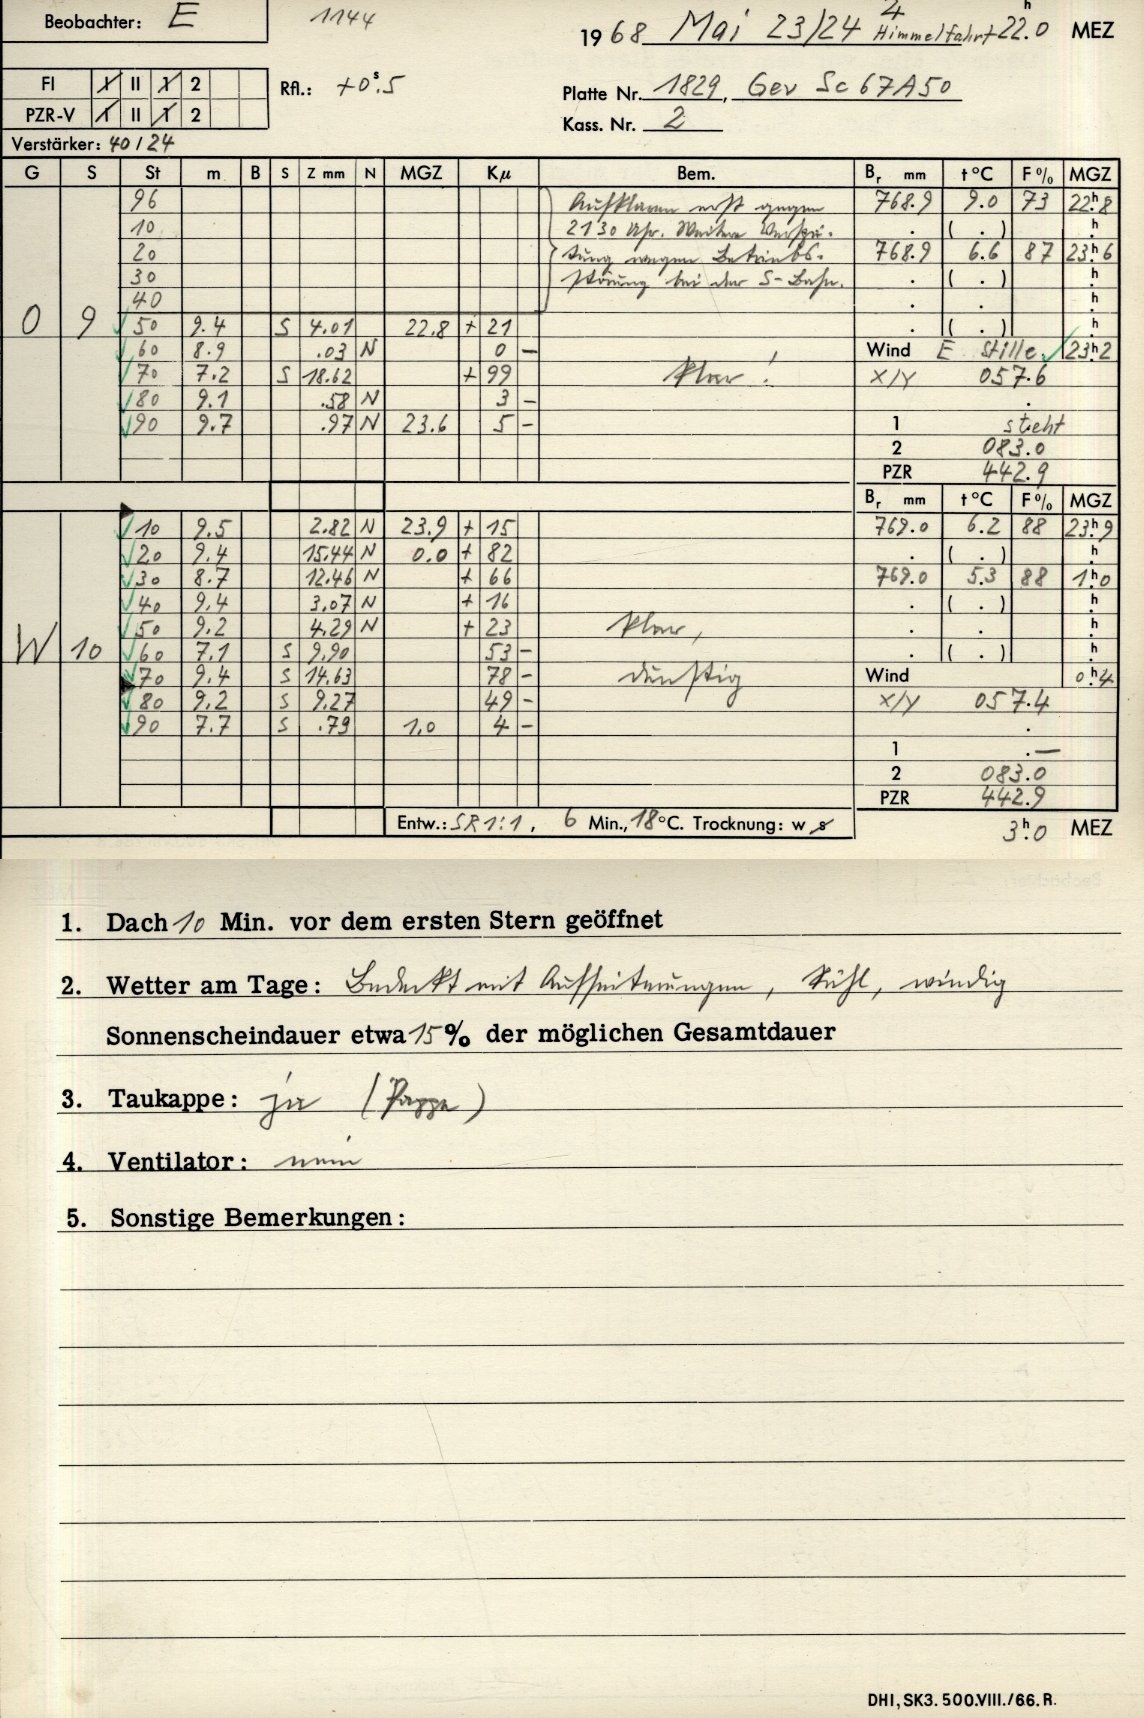 Beobachter: E 1144 1968 Mai 23/24 Himmelfahrt 22h.0 MEZ
FI I II 1 2 Rfl.: +0s.5 Platte Nr. 1829, Gev Sc 67A50
PZR-V I II 1 2 Kass. Nr. 2
Verstärker: 40/24
G S St m B S Z mm N MGZ Kμ Bem. Br mm t °C F % MGZ
96 Aufklaren erst gegen 768.9 9.0 73 22h.8
10 2130 Uhr. Weitere Verspä- . ( . ) h.
20 tung wegen Betriebs- 768.9 6.6 87 23h.6
30 störung bei der S-Bahn. . ( . ) h.
40 . . h.
O 9 50 9.4 S 4.01 22.8 + 21 . ( . ) h.
60 8.9 .03 N 0 - Wind E Stille 23h.2
70 7.2 S 18.62 + 99 klar! X/Y 057.6
80 9.1 .58 N 3 - .
90 9.7 .97 N 23.6 5 - 1 steht
2 083.0
PZR 442.9
Br mm t °C F % MGZ
10 9.5 2.82 N 23.9 + 15 769.0 6.2 88 23h.9
20 9.4 15.44 N 0.0 + 82 . ( . ) h.
30 8.7 12.46 N + 66 769.0 5.3 88 1h.0
40 9.4 3.07 N + 16 . ( . ) h.
50 9.2 4.29 N + 23 klar, . . h.
W 10 60 7.1 S 9.90 53 - . ( . ) h.
70 9.4 S 14.63 78 - dunstig Wind 0h.4
80 9.2 S 9.27 49 - X/Y 057.4
90 7.7 S .79 1.0 4 - .
1 .—
2 083.0
PZR 442.9
Entw.: SR 1:1, 6 Min., 18 °C. Trocknung: w s 3h.0 MEZ
1. Dach 10 Min. vor dem ersten Stern geöffnet
2. Wetter am Tage: Bedeckt mit Aufheiterungen, kühl, windig
Sonnenscheindauer etwa 15% der möglichen Gesamtdauer
3. Taukappe: ja (Pappe)
4. Ventilator: nein
5. Sonstige Bemerkungen:
DHI, SK3. 500.VIII./66. R.